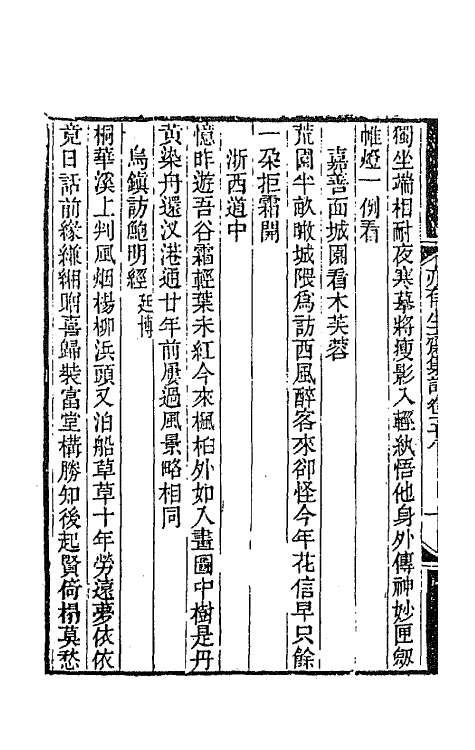 獨坐端相耐夜寒摹將瘦影入輕紈悟他身外傳神妙匣劔
帷燈一例看
嘉善面城園看木芙蓉
荒園半畝暾城隈爲訪西風醉客來卻怪今年花信早只餘
一朶拒霜開
浙西道中
憶昨遊吾谷霜輕葉未紅今來楓桕外如入畫圖中樹是丹
黄染舟還汊港通廿年前屢過風景略相同
烏鎮訪鮑明經廷博
桐華溪上判風烟楊柳浜頭又泊船草草十年勞遠夢依依
竟日話前緣縑緗喣喜歸裝富堂構勝知後起賢倚榻莫愁
亦有生齋集詩卷